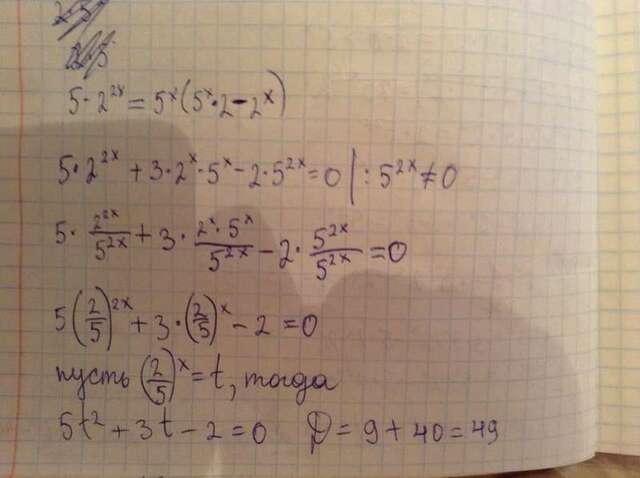 5 · 2^{2x} = 5^x (5^x · 2 - 2^x)
5 · 2^{2x} + 3 · 2^x · 5^x - 2 · 5^{2x} = 0 | : 5^{2x} ≠ 0
5 · \frac{2^{2x}}{5^{2x}} + 3 · \frac{2^x · 5^x}{5^{2x}} - 2 · \frac{5^{2x}}{5^{2x}} = 0
5 (\frac{2}{5})^{2x} + 3 · (\frac{2}{5})^x - 2 = 0
пусть (\frac{2}{5})^x = t, тогда
5t^2 + 3t - 2 = 0 D = 9 + 40 = 49